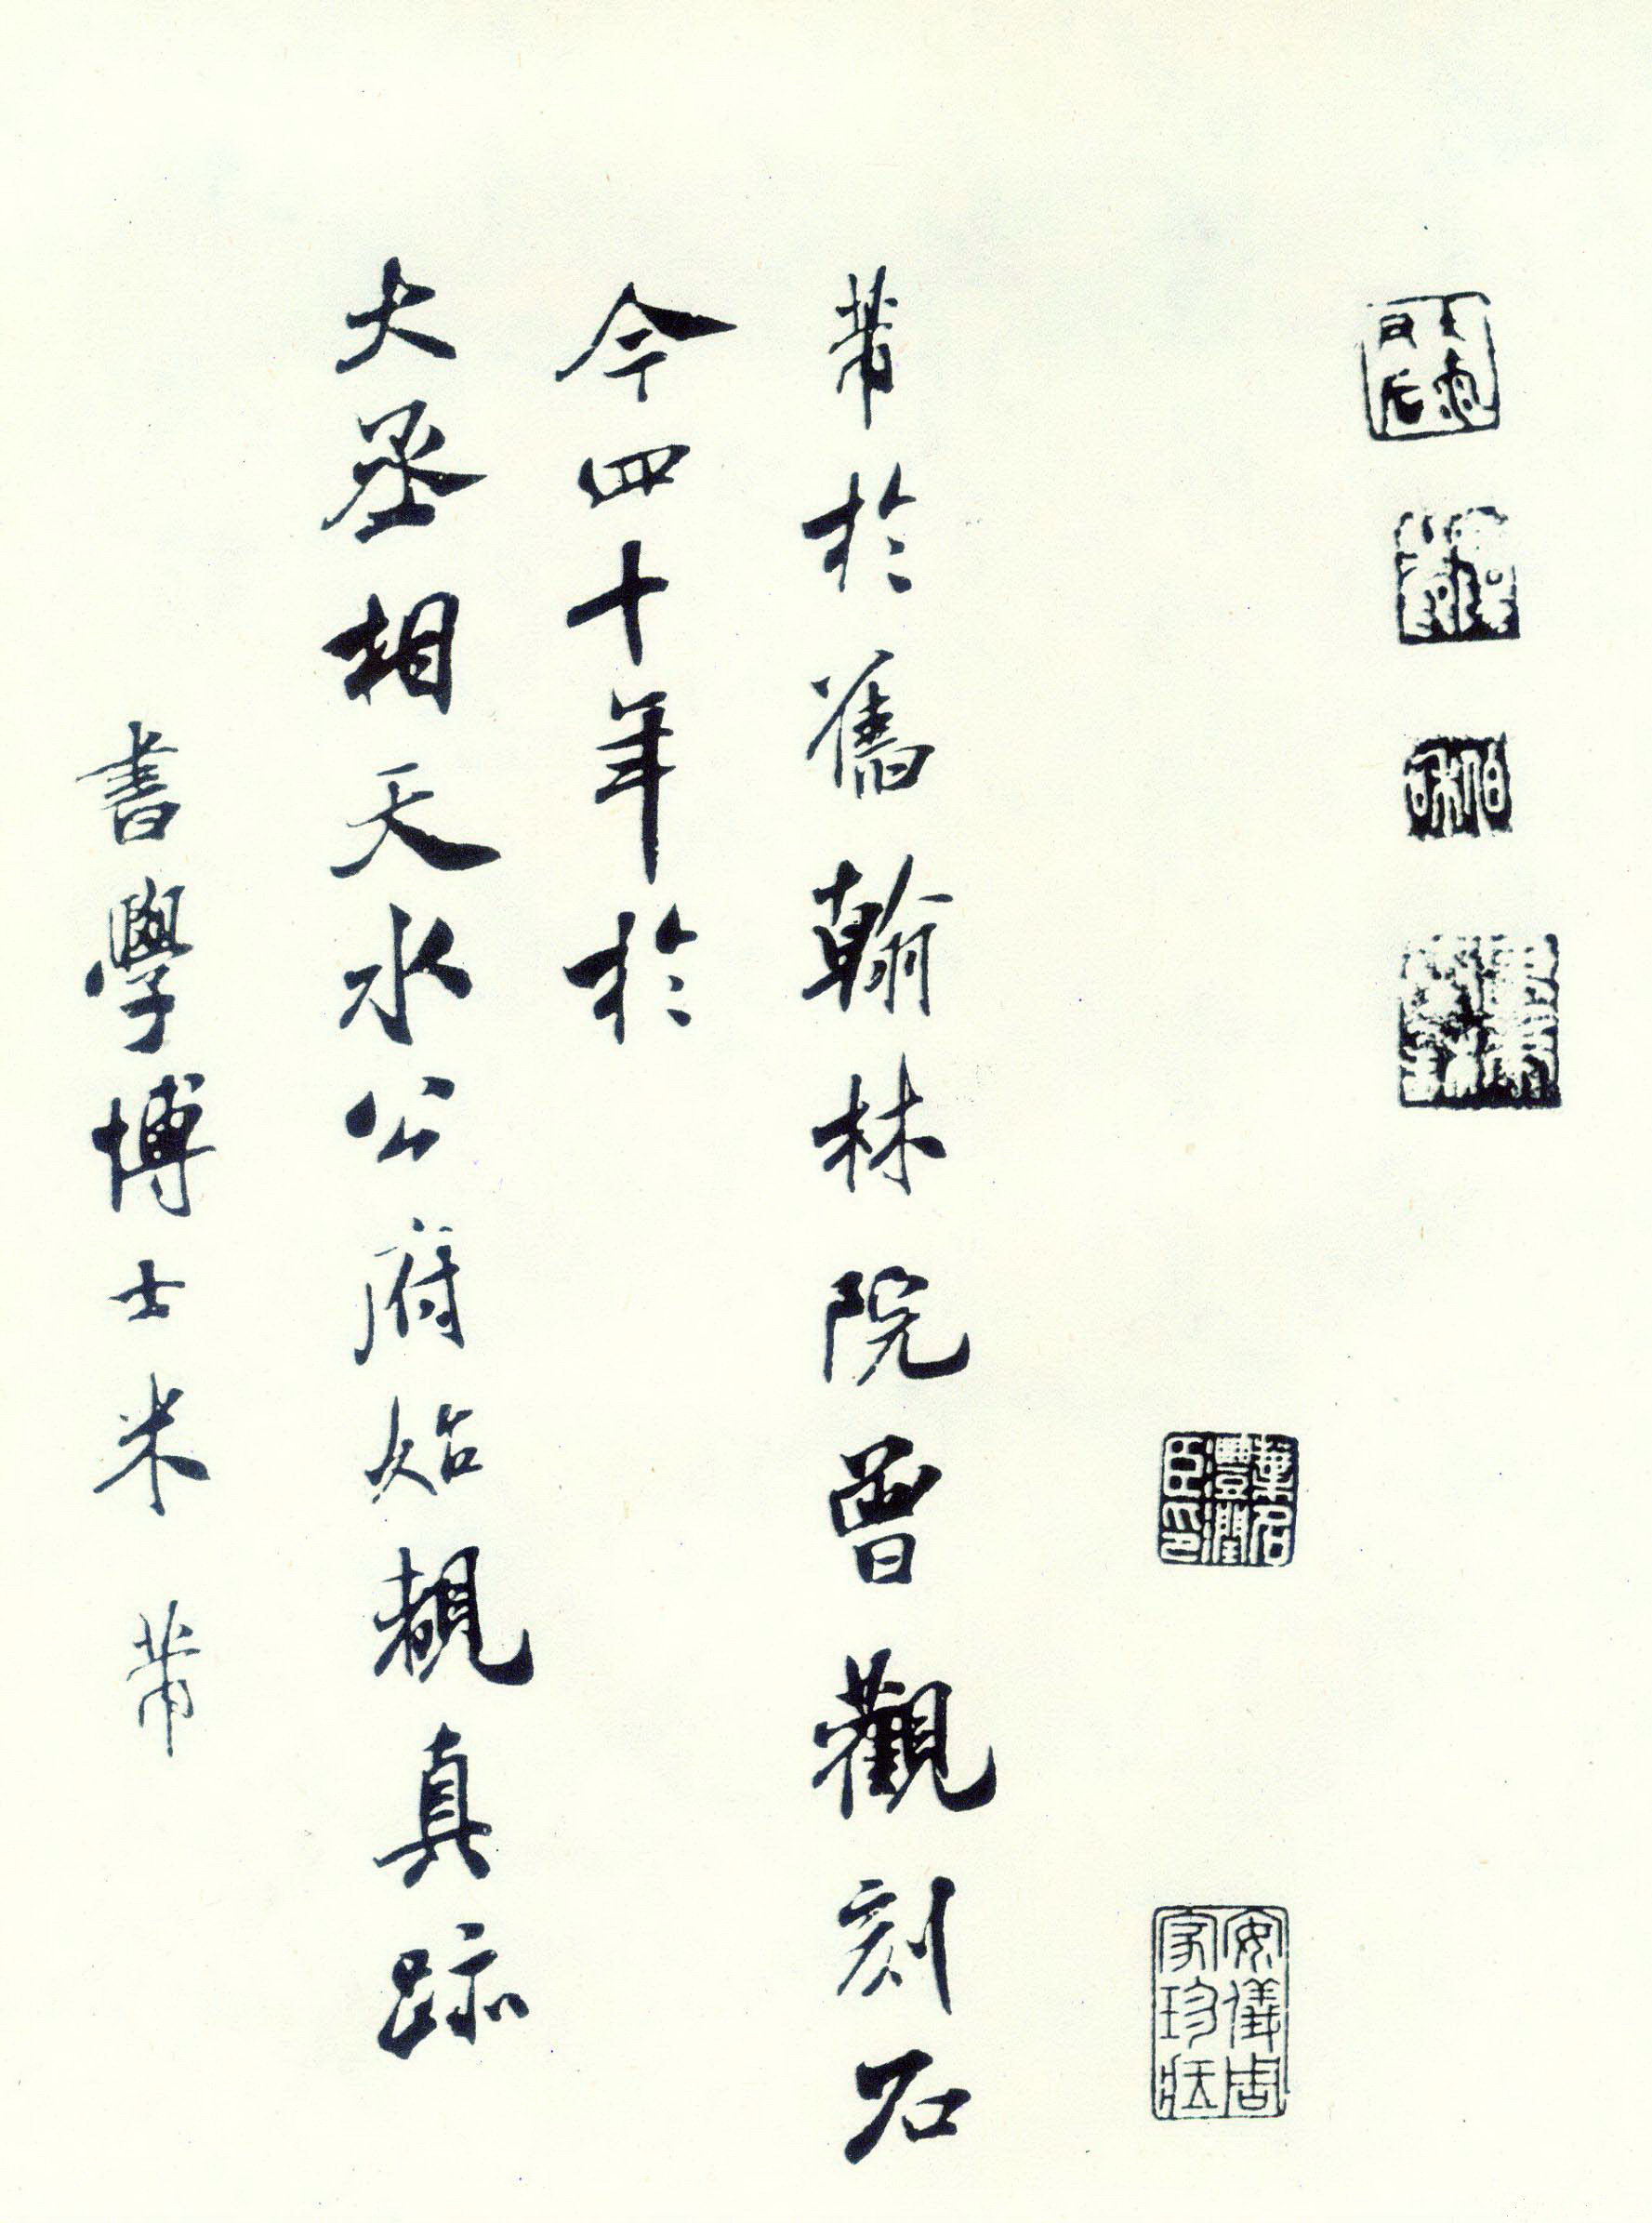 芾於舊翰林院曾觀刻石
今四十年於
大丞相天水公府始覩真跡
書學博士米芾
安儀周
家珍藏